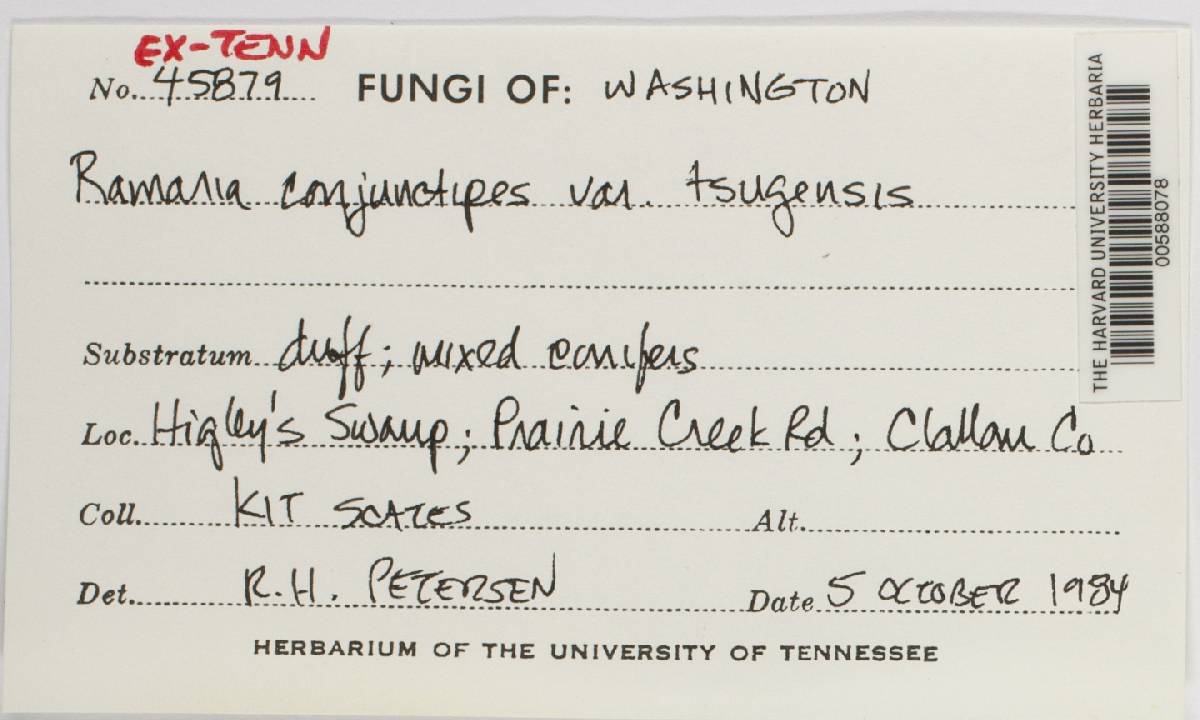 EX-TENN
No. 45879 FUNGI OF: WASHINGTON
Ramaria conjunctipes var. tsugensis
Substratum duff; mixed conifers
Loc. Higley's Swamp; Prairie Creek Rd; Clallam Co
Coll. KIT SCATES Alt.
Det. R.H. PETERSEN Date 5 OCTOBER 1984
HERBARIUM OF THE UNIVERSITY OF TENNESSEE
THE HARVARD UNIVERSITY HERBARIA
00588078